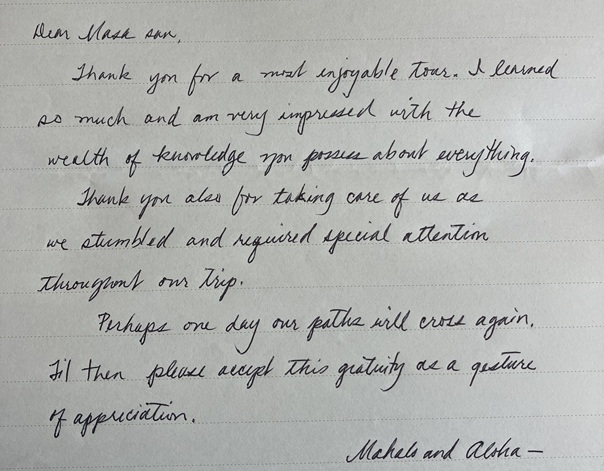 Dear Masa san,
Thank you for a most enjoyable tour. I learned
so much and am very impressed with the
wealth of knowledge you possess about everything.
Thank you also for taking care of us as
we stumbled and required special attention
throughout our trip.
Perhaps one day our paths will cross again.
Til then please accept this gratuity as a gesture
of appreciation.
Mahalo and Aloha —